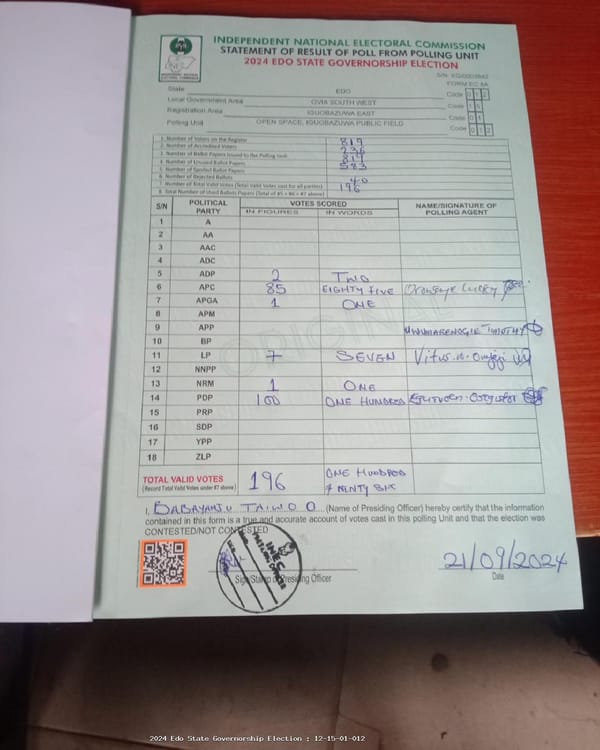 INDEPENDENT NATIONAL ELECTORAL COMMISSION
STATEMENT OF RESULT OF POLL FROM POLLING UNIT
2024 EDO STATE GOVERNORSHIP ELECTION
FORM EC 8A
State EDO Code 1 2
Local Government Area OVIA SOUTH WEST Code 1 5
Registration Area IGUOBAZUWA EAST Code 0 1
Polling Unit OPEN SPACE, IGUOBAZUWA PUBLIC FIELD Code 0 1 2
1. Number of Voters on the Register 819
2. Number of Accredited Voters 236
3. Number of Ballot Papers Issued to the Polling Unit 819
4. Number of Unused Ballot Papers 583
5. Number of Spoiled Ballot Papers
6. Number of Rejected Ballots 40
7. Number of Total Valid Votes (Total Valid Votes cast for all parties) 196
8. Total Number of Used Ballots Papers (Total of #5 + #6 + #7 above)
S/N POLITICAL PARTY VOTES SCORED NAME/SIGNATURE OF POLLING AGENT
IN FIGURES IN WORDS
1 A
2 AA
3 AAC
4 ADC
5 ADP 2 TWO
6 APC 85 EIGHTY FIVE Lucky
7 APGA 1 ONE
8 APM
9 APP
10 BP
11 LP 7 SEVEN
12 NNPP
13 NRM 1 ONE
14 PDP 100 ONE HUNDRED
15 PRP
16 SDP
17 YPP
18 ZLP
ORIGINAL
TOTAL VALID VOTES 196 ONE HUNDRED
(Record Total Valid Votes under #7 above)
I, (Name of Presiding Officer) hereby certify that the information
contained in this form is a true and accurate account of votes cast in this polling Unit and that the election was
CONTESTED/NOT CONTESTED
INEC
21/09/2024
Sign/Stamp of Presiding Officer
Date
2024 Edo State Governorship Election : 12-15-01-012